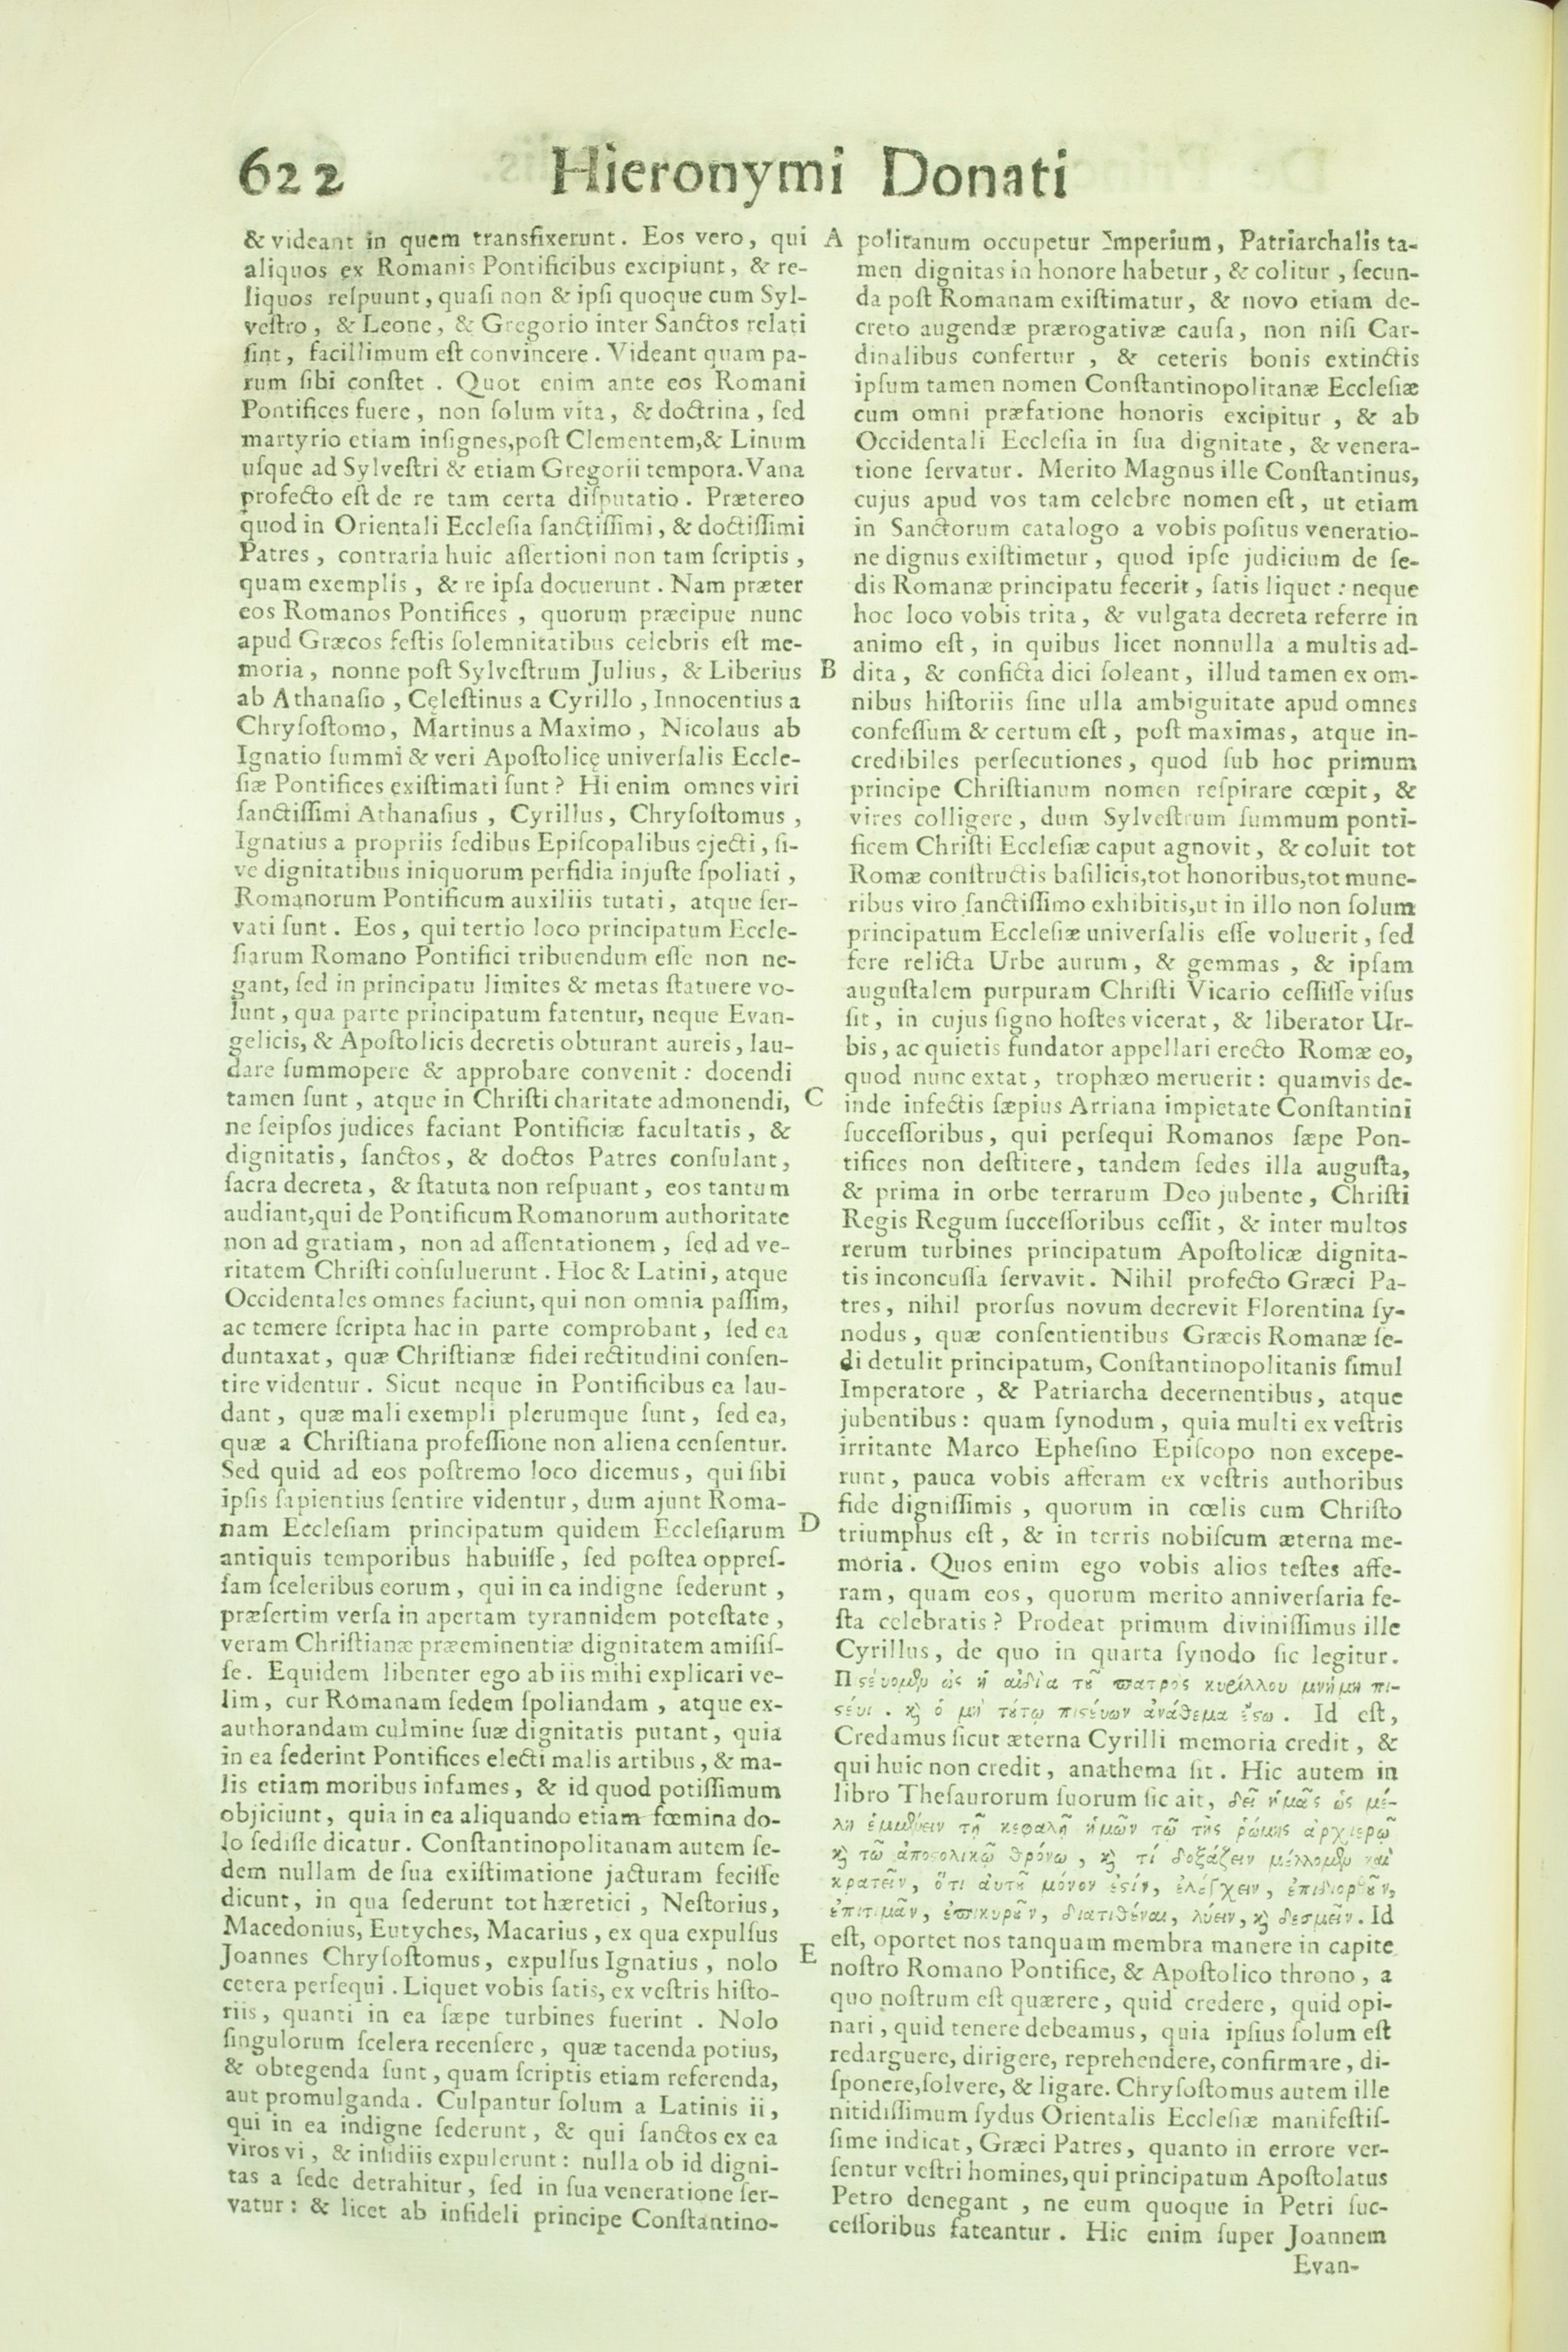 622 Hieronymi Donati
& videant in quem transfixerunt. Eos vero, qui
aliquos ex Romanis Pontificibus excipiunt, & re-
liquos reſpuunt, quaſi non & ipſi quoque cum Syl-
veſtro, & Leone, & Gregorio inter Sanctos relati
ſint, facillimum eſt convincere. Videant quam pa-
rum ſibi conſtet. Quot enim ante eos Romani
Pontifices fuere, non ſolum vita, & doctrina, ſed
martyrio etiam inſignes, poſt Clementem, & Linum
uſque ad Sylveſtri & etiam Gregorii tempora. Vana
profecto eſt de re tam certa diſputatio. Prætereo
quod in Orientali Eccleſia ſanctiſſimi, & doctiſſimi
Patres, contraria huic aſſertioni non tam ſcriptis,
quam exemplis, & re ipſa docuerunt. Nam præter
eos Romanos Pontifices, quorum præcipue nunc
apud Græcos feſtis ſolemnitatibus celebris eſt me-
moria, nonne poſt Sylveſtrum Julius, & Liberius
ab Athanaſio, Cęleſtinus a Cyrillo, Innocentius a
Chryſoſtomo, Martinus a Maximo, Nicolaus ab
Ignatio ſummi & veri Apoſtolicę univerſalis Eccle-
ſiæ Pontifices exiſtimati ſunt? Hi enim omnes viri
ſanctiſſimi Athanaſius, Cyrillus, Chryſoſtomus,
Ignatius a propriis ſedibus Epiſcopalibus ejecti, ſi-
ve dignitatibus iniquorum perfidia injuſte ſpoliati,
Romanorum Pontificum auxiliis tutati, atque ſer-
vati ſunt. Eos, qui tertio loco principatum Eccle-
ſiarum Romano Pontifici tribuendum eſſe non ne-
gant, ſed in principatu limites & metas ſtatuere vo-
lunt, qua parte principatum fatentur, neque Evan-
gelicis, & Apoſtolicis decretis obturant aureis, lau-
dare ſummopere & approbare convenit: docendi
tamen ſunt, atque in Chriſti charitate admonendi,
ne ſeipſos judices faciant Pontificiæ facultatis, &
dignitatis, ſanctos, & doctos Patres conſulant,
ſacra decreta, & ſtatuta non reſpuant, eos tantum
audiant, qui de Pontificum Romanorum authoritate
non ad gratiam, non ad aſſentationem, ſed ad ve-
ritatem Chriſti conſuluerunt. Hoc & Latini, atque
Occidentales omnes faciunt, qui non omnia paſſim,
ac temere ſcripta hac in parte comprobant, ſed ea
duntaxat, quæ Chriſtianæ fidei rectitudini conſen-
tire videntur. Sicut neque in Pontificibus ea lau-
dant, quæ mali exempli plerumque ſunt, ſed ea,
quæ a Chriſtiana profeſſione non aliena cenſentur.
Sed quid ad eos poſtremo loco dicemus, qui ſibi
ipſis ſapientius ſentire videntur, dum ajunt Roma-
nam Eccleſiam principatum quidem Eccleſiarum
antiquis temporibus habuiſſe, ſed poſtea oppreſ-
ſam ſceleribus eorum, qui in ea indigne ſederunt,
præſertim verſa in apertam tyrannidem poteſtate,
veram Chriſtianæ præeminentiæ dignitatem amiſiſ-
ſe. Equidem libenter ego ab iis mihi explicari ve-
lim, cur Romanam ſedem ſpoliandam, atque ex-
authorandam culmine ſuæ dignitatis putant, quia
in ea ſederint Pontifices electi malis artibus, & ma-
lis etiam moribus infames, & id quod potiſſimum
objiciunt, quia in ea aliquando etiam fœmina do-
lo ſediſſe dicatur. Conſtantinopolitanam autem ſe-
dem nullam de ſua exiſtimatione jacturam feciſſe
dicunt, in qua ſederunt tot hæretici, Neſtorius,
Macedonius, Eutyches, Macarius, ex qua expulſus
Joannes Chryſoſtomus, expulſus Ignatius, nolo
cetera perſequi. Liquet vobis ſatis, ex veſtris hiſto-
riis, quanti in ea ſæpe turbines fuerint. Nolo
ſingulorum ſcelera recenſere, quæ tacenda potius,
& obtegenda ſunt, quam ſcriptis etiam referenda,
aut promulganda. Culpantur ſolum a Latinis ii,
qui in ea indigne ſederunt, & qui ſanctos ex ea
viros vi, & inſidiis expulerunt: nulla ob id digni-
tas a ſede detrahitur, ſed in ſua veneratione ſer-
vatur: & licet ab infideli principe Conſtantino-
A
B
C
D
E
politanum occupetur Imperium, Patriarchalis ta-
men dignitas in honore habetur, & colitur, ſecun-
da poſt Romanam exiſtimatur, & novo etiam de-
creto augendæ prærogativæ cauſa, non niſi Car-
dinalibus confertur, & ceteris bonis extinctis
ipſum tamen nomen Conſtantinopolitanæ Eccleſiæ
cum omni præfatione honoris excipitur, & ab
Occidentali Eccleſia in ſua dignitate, & venera-
tione ſervatur. Merito Magnus ille Conſtantinus,
cujus apud vos tam celebre nomen eſt, ut etiam
in Sanctorum catalogo a vobis poſitus veneratio-
ne dignus exiſtimetur, quod ipſe judicium de ſe-
dis Romanæ principatu fecerit, ſatis liquet: neque
hoc loco vobis trita, & vulgata decreta referre in
animo eſt, in quibus licet nonnulla a multis ad-
dita, & conficta dici ſoleant, illud tamen ex om-
nibus hiſtoriis ſine ulla ambiguitate apud omnes
confeſſum & certum eſt, poſt maximas, atque in-
credibiles perſecutiones, quod ſub hoc primum
principe Chriſtianum nomen reſpirare cœpit, &
vires colligere, dum Sylveſtrum ſummum ponti-
ficem Chriſti Eccleſiæ caput agnovit, & coluit tot
Romæ conſtructis baſilicis, tot honoribus, tot mune-
ribus viro ſanctiſſimo exhibitis, ut in illo non ſolum
principatum Eccleſiæ univerſalis eſſe voluerit, ſed
fere relicta Urbe aurum, & gemmas, & ipſam
auguſtalem purpuram Chriſti Vicario ceſſiſſe viſus
ſit, in cujus ſigno hoſtes vicerat, & liberator Ur-
bis, ac quietis fundator appellari erecto Romæ eo,
quod nunc extat, trophæo meruerit: quamvis de-
inde infectis ſæpius Arriana impietate Conſtantini
ſucceſſoribus, qui perſequi Romanos ſæpe Pon-
tifices non deſtitere, tandem ſedes illa auguſta,
& prima in orbe terrarum Deo jubente, Chriſti
Regis Regum ſucceſſoribus ceſſit, & inter multos
rerum turbines principatum Apoſtolicæ dignita-
tis inconcuſſa ſervavit. Nihil profecto Græci Pa-
tres, nihil prorſus novum decrevit Florentina ſy-
nodus, quæ conſentientibus Græcis Romanæ ſe-
di detulit principatum, Conſtantinopolitanis ſimul
Imperatore, & Patriarcha decernentibus, atque
jubentibus: quam ſynodum, quia multi ex veſtris
irritante Marco Epheſino Epiſcopo non excepe-
runt, pauca vobis afferam ex veſtris authoribus
fide digniſſimis, quorum in cœlis cum Chriſto
triumphus eſt, & in terris nobiſcum æterna me-
moria. Quos enim ego vobis alios teſtes affe-
ram, quam eos, quorum merito anniverſaria fe-
ſta celebratis? Prodeat primum diviniſſimus ille
Cyrillus, de quo in quarta ſynodo ſic legitur.
Πιϛεύομεν ὡς ἡ ἀιδία τοῦ πατρὸς κυρίλλου μνήμη πι-
ϛέυι. καὶ ὁ μὴ τούτῳ πιϛεύων ἀνάθεμα ἔϛω. Id eſt,
Credamus ſicut æterna Cyrilli memoria credit, &
qui huic non credit, anathema ſit. Hic autem in
libro Theſaurorum ſuorum ſic ait, δεῖ ἡμᾶς ὡς μέ-
λη ἐμμένειν τῇ κεφαλῇ ἡμῶν τῷ τῆς ῥώμης ἀρχιερῷ
καὶ τῷ ἀποϛολικῷ θρόνῳ, καὶ τί δοξάζειν μέλλομεν καὶ
κρατεῖν, ὅτι ἀυτοῦ μόνον ἐϛίν, ἐλέγχειν, ἐπιδιορθοῦν,
ἐπιτιμᾶν, ἐπικυροῦν, διατιθέναι, λύειν, καὶ δεσμεῖν. Id
eſt, oportet nos tanquam membra manere in capite
noſtro Romano Pontifice, & Apoſtolico throno, a
quo noſtrum eſt quærere, quid credere, quid opi-
nari, quid tenere debeamus, quia ipſius ſolum eſt
redarguere, dirigere, reprehendere, confirmare, di-
ſponere, ſolvere, & ligare. Chryſoſtomus autem ille
nitidiſſimum ſydus Orientalis Eccleſiæ manifeſtiſ-
ſime indicat, Græci Patres, quanto in errore ver-
ſentur veſtri homines, qui principatum Apoſtolatus
Petro denegant, ne eum quoque in Petri ſuc-
ceſſoribus fateantur. Hic enim ſuper Joannem
Evan-